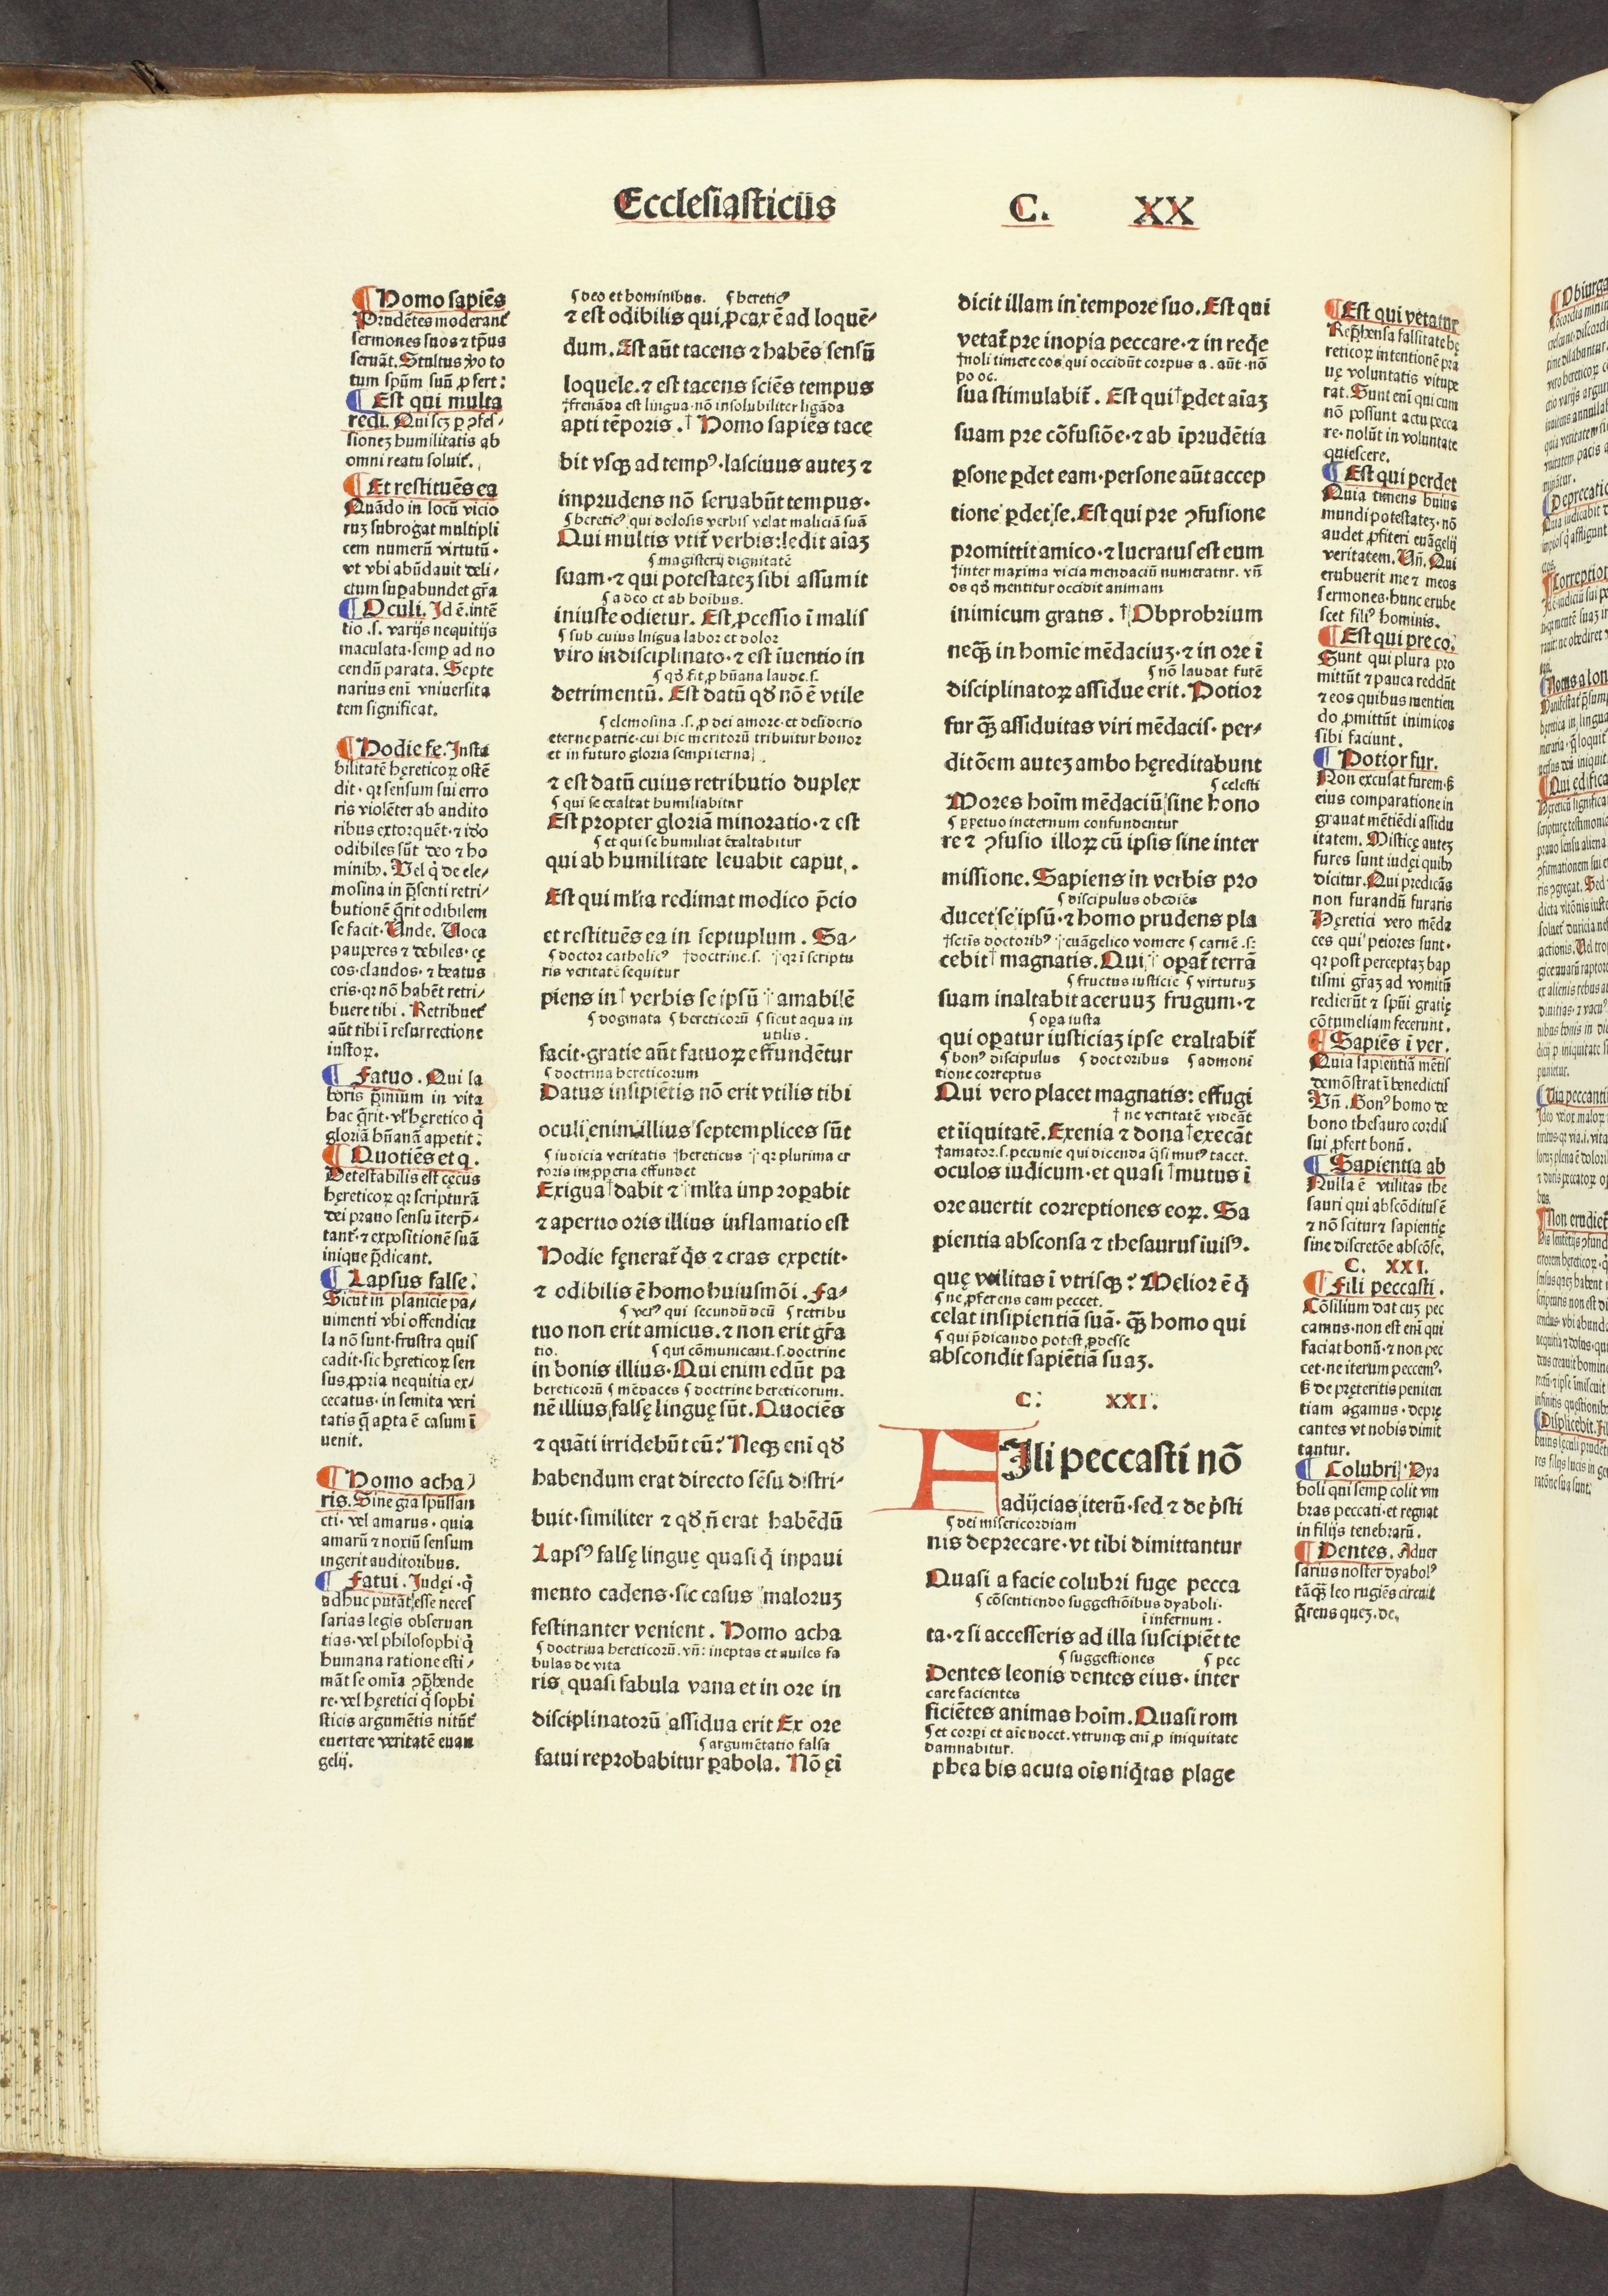 Ecclesiasticus C. XX
¶ Homo sapiēs
Prudētes moderant᷑
sermones suos ⁊ tp̄us
seruāt. Stultus ꝟo to
tum spūm suū ꝓfert:
¶ Est qui multa
redi. Qui scꝫ ꝑ ꝯfes-
sioneꝫ humilitatis ab
omni reatu soluit᷑.
¶ Et restituēs ea
Quādo in locū vicio
ruꝫ subrogat multipli
cem numerū virtutū.
vt vbi abūdauit deli-
ctum suꝑabundet gr̄a
¶ Oculi. Id ē. intē
tio .s. varijs nequitijs
maculata. semꝑ ad no
cendū parata. Septe
narius eni᷑ vniuersita
tem significat.
¶ Hodie fe. Insta
bilitatē hęreticoꝝ ostē
dit. qꝛ sensum sui erro
ris violēter ab audito
ribus extorquēt. ⁊ iđo
odibiles sūt deo ⁊ ho
minibꝫ. Vel q̇ de ele-
mosina in p̄senti retri-
butionē q̄rit odibilem
se facit. Unde. Uoca
pauperes ⁊ debiles. cę
cos. claudos. ⁊ beatus
eris. qꝛ nō habēt retri-
buere tibi. Retribuet᷑
aūt tibi ī resurrectione
iustoꝝ.
¶ Fatuo. Qui la
boris p̄mium in vita
hac q̄rit. vl̓ hęretico q̇
gloriā hūanā appetit:
¶ Quotiēs et q.
Detestabilis est cęcus
hęreticoꝝ qꝛ scripturā
dei prauo sensu īterp̄-
tant᷑. ⁊ expositionē suā
inique p̄dicant.
¶ Lapsus false.
Sicut in planicie pa-
uimenti vbi offendicu
la nō sunt. frustra quis
cadit. sic hęreticoꝝ sen
sus ꝓpria nequitia ex-
cecatus. in semita veri
tatis q̄ aꝑta ē casum ī
uenit.
¶ Homo acha
ris. Sine gr̄a spūssan
cti. vel amarus. quia
amarū ⁊ noxiū sensum
ingerit auditoribus.
¶ Fatui. Iudęi. q̇
adhuc putāt esse neces
sarias legis obseruan
tias. vel philosophi q̇
humana ratione esti-
māt se omīa ꝯp̄hende
re. vel hęretici q̇ sophi
sticis argumētis nitūt᷑
euertere veritatē euan
gelij.
¶ deo et hominibus. ¶ hereticꝰ
⁊ est odibilis qui ꝓcax ē ad loquē-
dum. Est aūt tacens ⁊ habēs sensū
loquele. ⁊ est tacens sciēs tempus
†frenāda est lingua. nō insolubiliter ligāda
apti tēporis. † Homo sapiēs tace
bit vsqꝫ ad tempꝰ. lasciuus auteꝫ ⁊
imprudens nō seruabūt tempus.
¶ hereticꝰ qui dolosis verbis velat maliciā suā
Qui multis vtit᷑ verbis: ledit aīaꝫ
¶ magisterij dignitatē
suam. ⁊ qui potestateꝫ sibi assumit
¶ a deo et ab hoībus.
iniuste odietur. Est ꝓcessio ī malis
¶ sub cuius lnigua labor et dolor
viro indisciplinato. ⁊ est īuentio in
¶ qđ fit ꝓ hūana laude .s.
detrimentū. Est datū qđ nō ē vtile
¶ elemosina .s. ꝓ dei amore. et desiderio
eterne patrie. cui hic meritorū tribuitur honor
et in futuro gloria sempiterna
⁊ est datū cuius retributio duplex
¶ qui se exaltat humiliabitur
Est propter gloriā minoratio. ⁊ est
¶ et qui se humiliat exaltabitur
qui ab humilitate leuabit caput.
Est qui ml̓ta redimat modico p̄cio
et restituēs ea in septuplum. Sa-
¶ doctor catholicꝰ †doctrine .s. qꝛ ī scriptu
ris veritatē sequitur
piens in† verbis se ipsū amabilē
¶ dogmata ¶ hereticorū ¶ sicut aqua in
utilis.
facit. gratie aūt fatuoꝝ effundētur
¶ doctrina hereticorum
Datus insipiētis nō erit vtilis tibi
oculi enim illius septemplices sūt
¶ iudicia veritatis †hereticus qꝛ plurima er
roris imꝓperia effundet
Exigua†dabit ⁊ ml̓ta imꝓꝑabit
⁊ apertio oris illius inflamatio est
Hodie fęnerat᷑ q̇s ⁊ cras expetit.
⁊ odibilis ē homo huiusmōi. Fa-
¶ verꝰ qui secundū deū ¶ retribu
tuo non erit amicus. ⁊ non erit gr̄a
tio. ¶ qui cōmunicant .s. doctrine
in bonis illius. Qui enim edūt pa
hereticorū ¶ mēdaces ¶ doctrine hereticorum.
nē illius, falsę linguę sūt. Quociēs
⁊ quāti irridebūt eū: Neqꝫ eni᷑ qđ
habendum erat directo sēsu distri-
buit. similiter ⁊ qđ ñ erat habēdū
Lapsꝰ falsę linguę quasi q̇ inpaui
mento cadens. sic casus maloruꝫ
festinanter venient. Homo acha
¶ doctrina hereticorū. vn̄: ineptas et aniles fa
bulas de vita
ris. quasi fabula vana et in ore in
disciplinatorū assidua erit Ex ore
¶ argumētatio falsa
fatui reprobabitur ꝑabola. Nō ęi᷑
dicit illam in tempore suo. Est qui
vetat᷑ pre inopia peccare. ⁊ in req̇e
†noli timere eos qui occidūt corpus a. aūt. nō
po oc.
sua stimulabit᷑. Est qui†ꝑdet aīaꝫ
suam pre cōfusiōe. ⁊ ab īprudētia
ꝑsone ꝑdet eam. persone aūt accep
tione ꝑdet se. Est qui pre ꝯfusione
promittit amico. ⁊ lucratus est eum
†inter maxima vicia mendaciū numeratur. vn̄
os qđ mentitur occidit animam
inimicum gratis. †Obprobrium
neqꝫ in homīe mēdaciuꝫ. ⁊ in ore ī
¶ nō laudat furē
disciplinatoꝝ assidue erit. Potior
fur qꝫ̄ assiduitas viri mēdacis. per-
ditōem auteꝫ ambo hęreditabunt
¶ celesti
Mores hoīm mēdaciū sine hono
¶ ꝑpetuo ineternum confundentur
re ⁊ ꝯfusio illoꝝ cū ipsis sine inter
missione. Sapiens in verbis pro
¶ discipulus obediēs
ducet se ipsū. ⁊ homo prudens pla
†sctīs doctoribꝰ euāgelico vomere ¶ carnē .s:
cebit† magnatis. Qui oꝑat᷑ terrā
¶ fructus iusticie ¶ virtutuꝫ
suam inaltabit aceruuꝫ frugum. ⁊
¶ oꝑa iusta
qui oꝑatur iusticiaꝫ ipse exaltabit᷑
¶ bonꝰ discipulus ¶ doctoribus ¶ admoni
tione correptus
Qui vero placet magnatis: effugi
† ne veritatē videāt
et īiquitatē. Exenia ⁊ dona†execāt
†amator .s. pecunie qui dicenda q̄si mutꝰ tacet.
oculos iudicum. et quasi †mutus ī
ore auertit correptiones eoꝝ. Sa
pientia absconsa ⁊ thesaurus īuisꝰ.
quę vtilitas ī vtrisqꝫ: Melior ē q̇
¶ ne ꝓferens eam peccet.
celat insipientiā suā. qꝫ̄ homo qui
¶ qui p̄dicando potest ꝓdesse
abscondit sapiētiā suaꝫ.
C. XXI.
FIli peccasti nō
adijcias iterū. sed ⁊ de p̓sti
¶ dei misericordiam
nis deprecare. vt tibi dimittantur
Quasi a facie colubri fuge pecca
¶ cōsentiendo suggestiōibus dyaboli.
ī infernum.
ta. ⁊ si accesseris ad illa suscipiēt te
¶ suggestiones ¶ pec
Dentes leonis dentes eius. inter
care facientes
ficiētes animas hoīm. Quasi rom
¶ et corꝑi et aīe nocet. vtrunqꝫ eni᷑ ꝓ iniquitate
damnabitur.
phea bis acuta oīs niq̇tas plage
¶ Est qui vetatur
Rep̄hensa falsitate hę
reticoꝝ intentionē pra
uę voluntatis vitupe
rat. Sunt eni᷑ qui cum
nō possunt actu pecca
re. nolūt in voluntate
quiescere.
¶ Est qui perdet
Quia timens huius
mundi potestateꝫ. nō
audet ꝓfiteri euāgelij
veritatem. Vn̄. Qui
erubuerit me ⁊ meos
sermones. hunc erube
scet filiꝰ hominis.
¶ Est qui pre co.
Sunt qui plura pro
mittūt ⁊ pauca reddūt
⁊ eos quibus mentien
do ꝓmittūt inimicos
sibi faciunt.
¶ Potior fur.
Non excusat furem. sꝫ
eius comparatione in
grauat mētiēdi assidu
itatem. Misticę auteꝫ
fures sunt iudęi quibꝫ
dicitur. Qui predicās
non furandū furaris
Hęretici vero mēda
ces qui peiores sunt.
qꝛ post perceptaꝫ bap
tismi gr̄aꝫ ad vomitū
redierūt ⁊ spūi gratię
cōtumeliam fecerunt.
¶ Sapiēs i ver.
Quia sapientiā mētis
demōstrat ī benedictis
Vn̄. Bonꝰ homo de
bono thesauro cordis
sui ꝓfert bonū.
¶ Sapientia ab
Nulla ē vtilitas the
sauri qui abscōditus ē
⁊ nō scitur ⁊ sapientię
sine discretōe abscōse.
C. XXI.
¶ Fili peccasti.
Cōsilium dat cuꝫ pec
camus. non est eni᷑ qui
faciat bonū. ⁊ non pec
cet. ne iterum peccemꝰ.
sꝫ de pręteritis peniten
tiam agamus. deprę
cantes vt nobis dimit
tantur.
¶ Colubri. Dya
boli qui semꝑ colit vm
bras peccati. et regnat
in filijs tenebrarū.
¶ Dentes. Aduer
sarius noster dyabolꝰ
tāqꝫ̄ leo rugiēs circuit
q̄rens queꝫ. de.